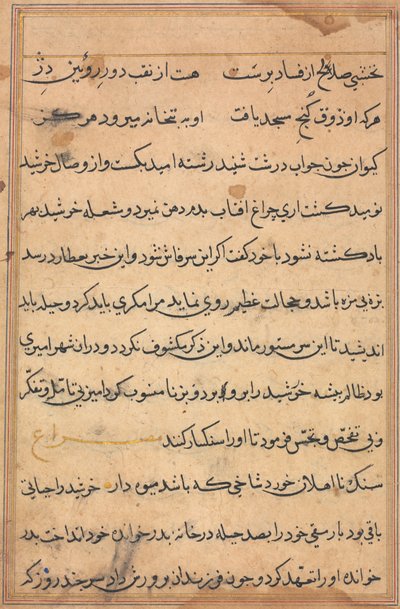 نخشبی صلاح از فساد برست هست از نقب دور روئین دژ
هر که او ذوق کنج سجد یافت او به بتخانه میرود هرکز
کیوان چون جواب درشت شنید رشته امید بکست و از وصال خورشید
نومید کشت اری چراغ افتاب بدم دهن نمیرد و شعله خورشید بهر
باد کشته نشود با خود کفت اکر این سر فاش شود و این خبر بعطارد رسد
بزه بی مزه باشد و خجالت عظیم روی نماید مرا مکری باید کرد و حیله باید
اندیشید تا این سر مستور ماند و این ذکر مکشوف نکردد و دران شهر امیری
بود ظالم پیشه خورشید را بدو برد و بزنا منسوب کرد امیر بی تامل و تفکر
و بی تفحص و تجسس فرمود تا او را سنکسار کنند مصراع
سنک نا اهلان خورد شاخی که باشد میوه دار خورشید را حیاتی
باقی بود پارسیٔ خود را بصد حیله در خانه پدر خوانده خود انداخت پدر
خوانده او را تعهد کرد و چون فرزندان پرورش داد سر چند روز که